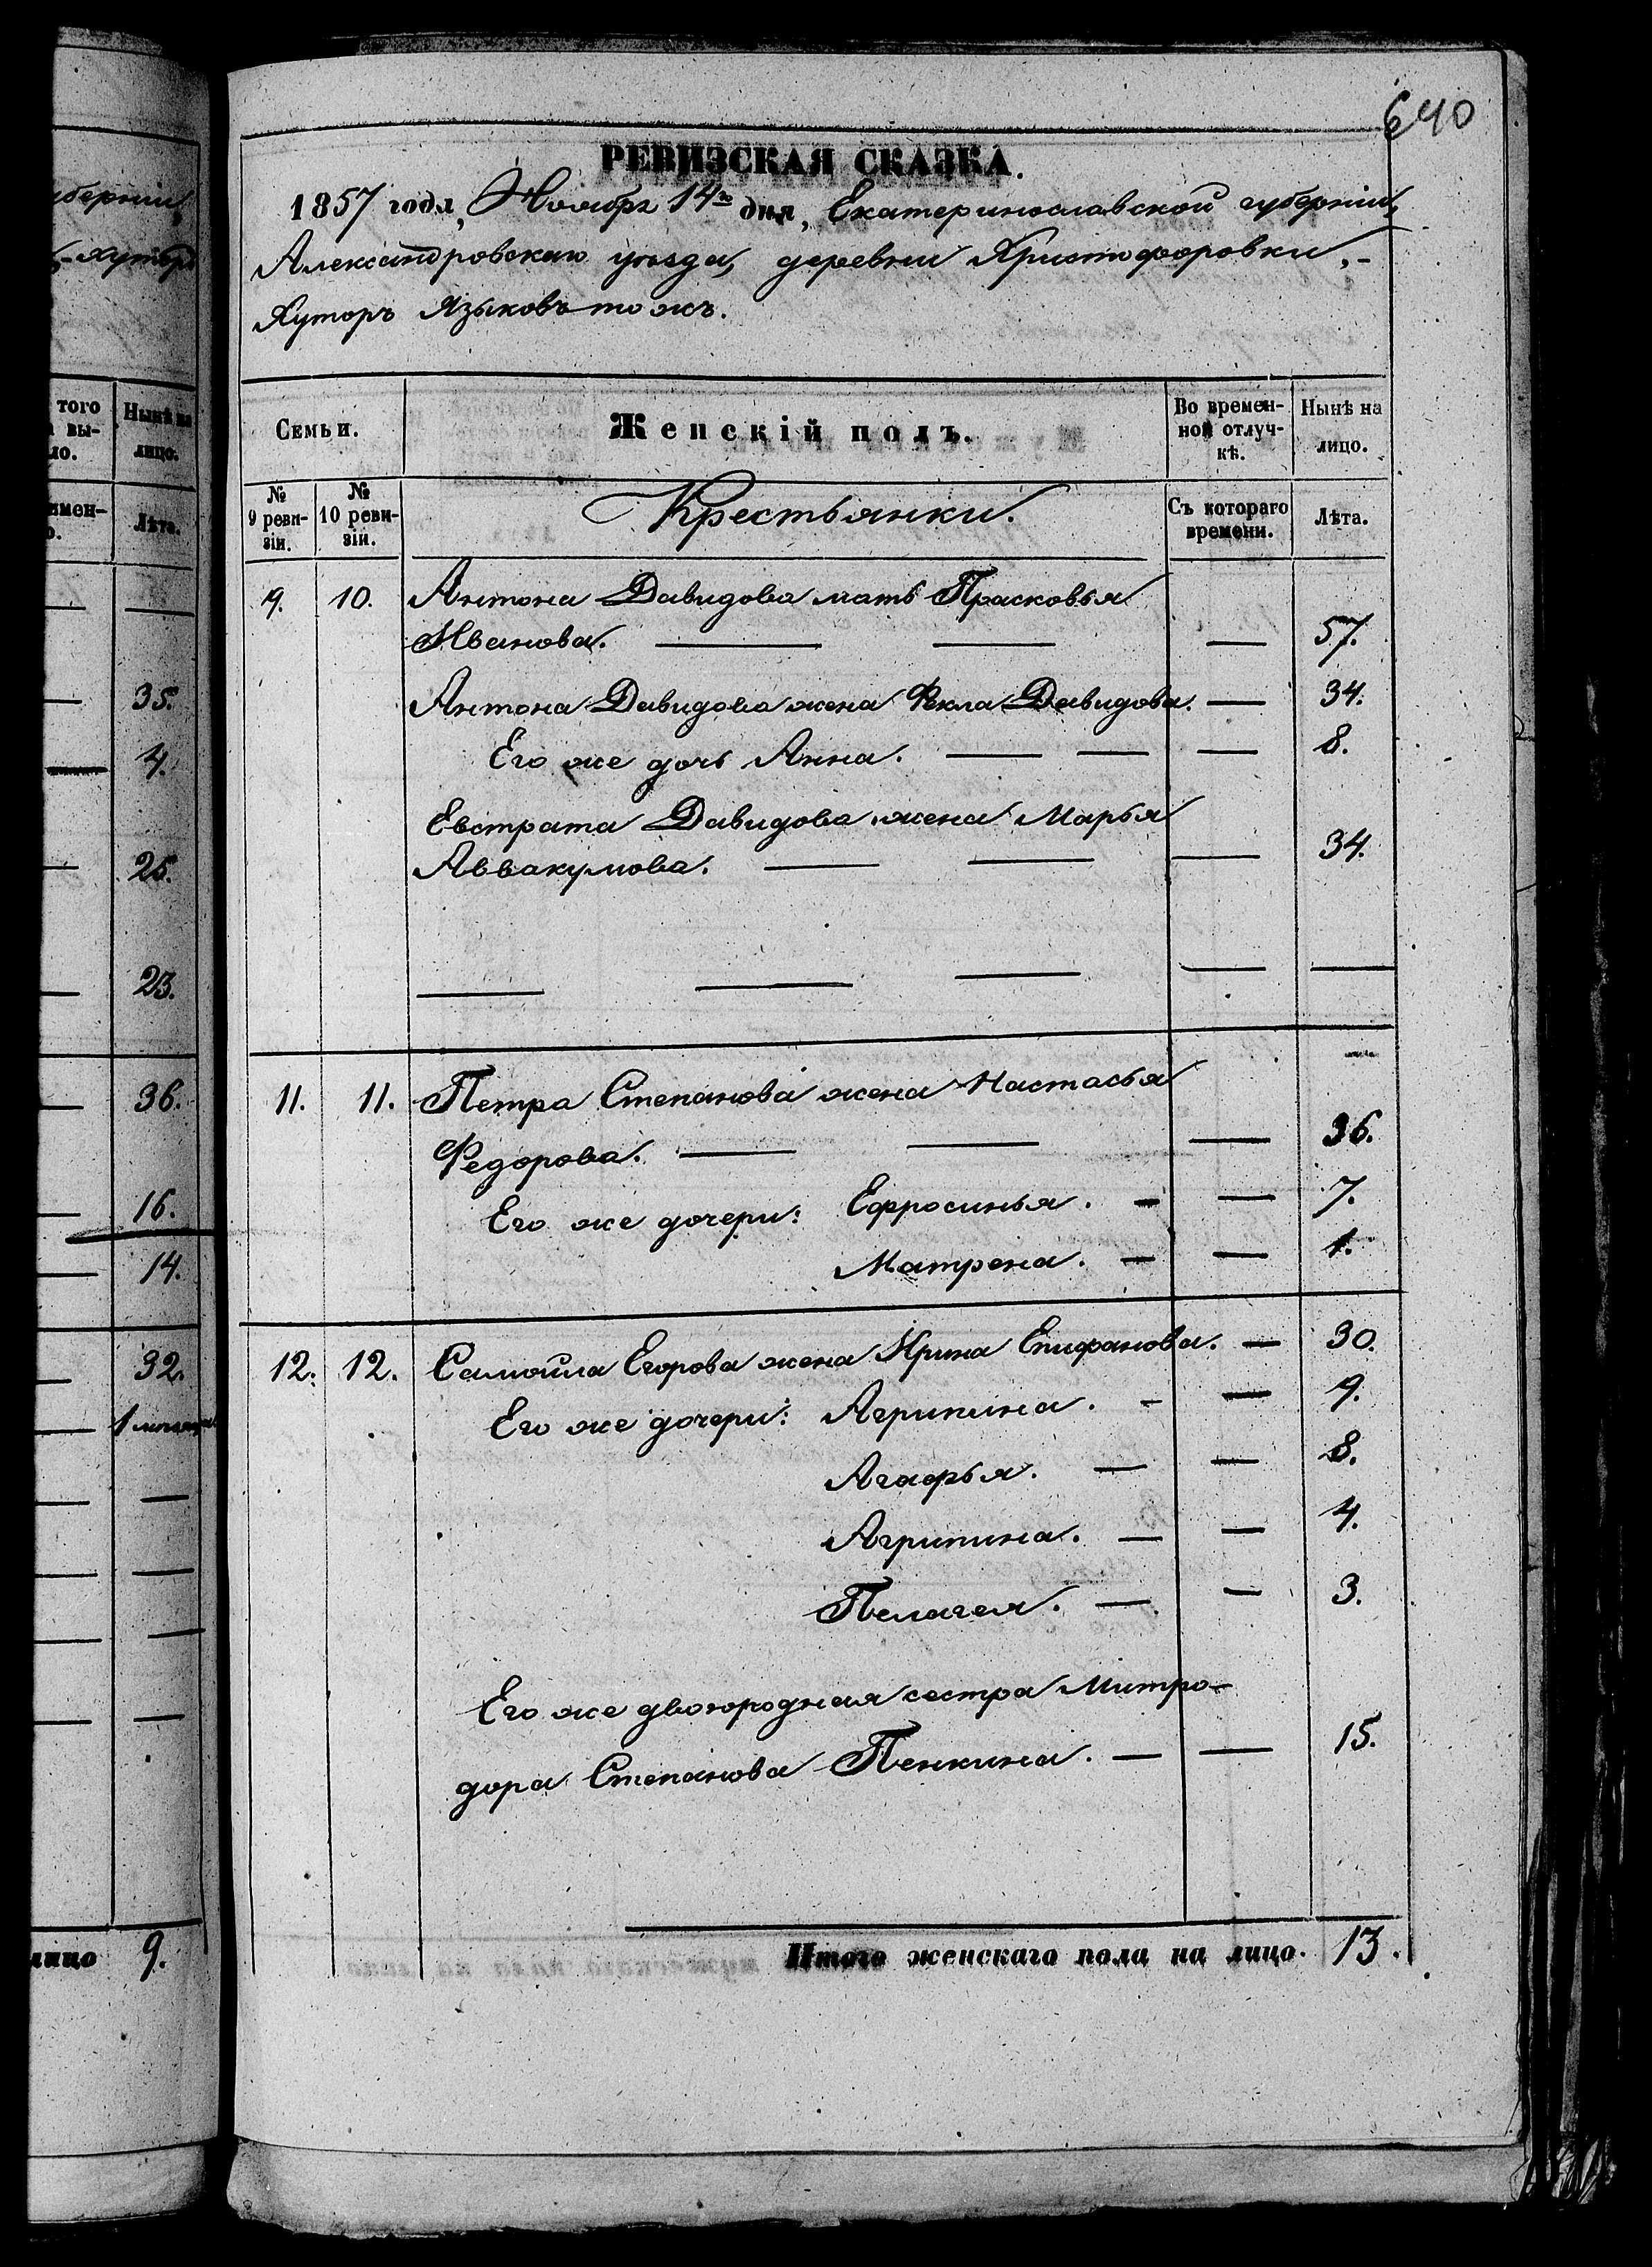 губерніи,
-хуторъ
того Нынѣ на
вы- лицо.
ло.
имен- Лѣта.
о.
35.
4.
25.
23.
36.
16.
14.
32.
лицо 9.
640
РЕВИЗСКАЯ СКАЗКА.
1857 года, Ноября 14го дня, Екатеринославской губерніи,
Александровскаго уѣзда, деревни Христофоровки,-
Хуторъ Языковъ тожъ.
Семьи. Женскій полъ. Во времен- ной отлуч- кѣ. Нынѣ на лицо.
№ 9 реви- зіи. № 10 реви- зіи. Крестьянки. Съ котораго времени. Лѣта.
9. 10. Антона Давидова мать Прасковья
Иванова. — — — 57.
Антона Давидова жена Фекла Давидова. — 34.
Его же дочь Анна. — — — 8.
Евстрата Давидова жена Марья
Аввакумова. — — — 34.
— — — — —
11. 11. Петра Степанова жена Настасья
Федорова. — — — 36.
Его же дочери: Ефросинья. — — 7.
Матрена. — — 1.
12. 12. Самойла Егорова жена Ирина Епифанова. — 30.
Его же дочери: Агрипина. — — 9.
Агафья. — — 8.
Агрипина. — — 4.
Пелагея. — — 3.
Его же двоюродная сестра Митро-
дора Степанова Пенкина. — — 15.
Итого женскаго пола на лицо. 13.